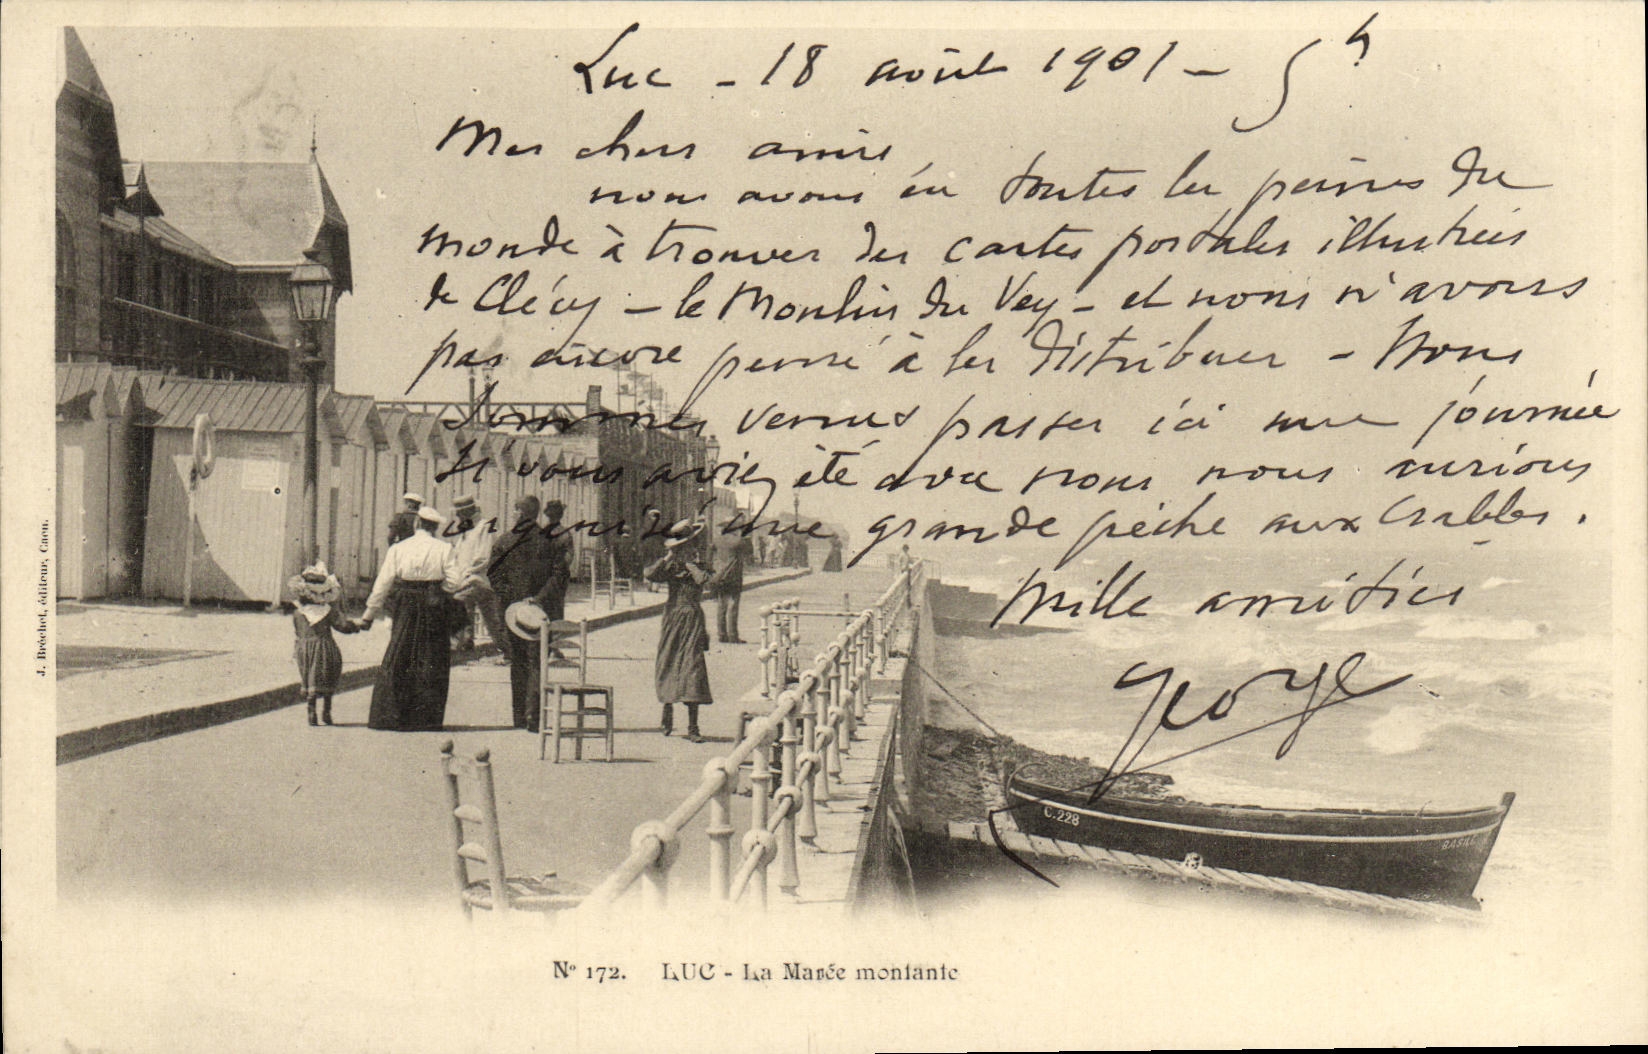 Luc - 18 août 1901 - 5h
Mes chers amis,
nous avons eu toutes les peines du
monde à trouver des cartes postales illustrées
de Clécy - le Moulin du Vey - et nous n'avons
pas encore pensé à les distribuer - Nous
sommes venus passer ici une journée
si vous aviez été avec nous nous aurions
organisé une grande pêche aux Crabbes.
Mille amitiés
George
C.228
J. Bréchet, éditeur, Caen.
No 172. LUC - La Marée montante